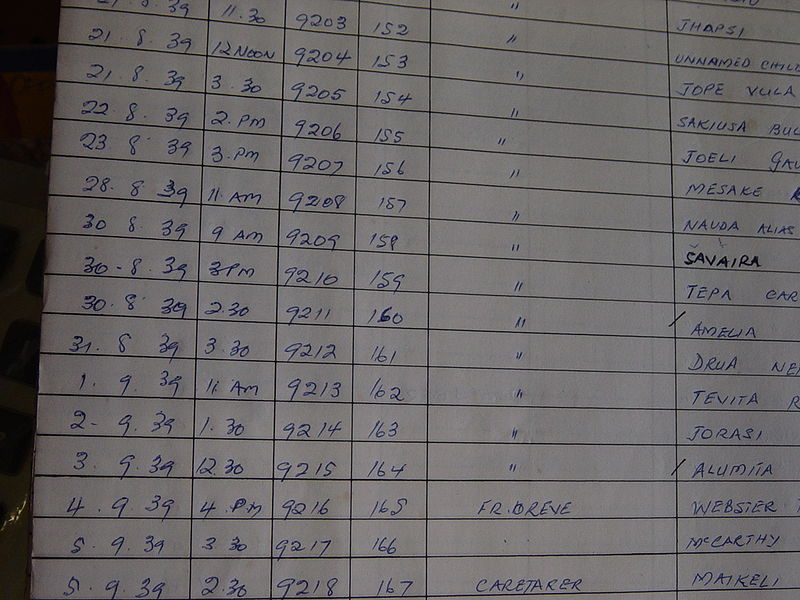 11.30 9203 152 " JHAPSI
21. 8. 39 12 NOON 9204 153 " UNNAMED
21. 8. 39 3. 30 9205 154 " JOPE VULA
22. 8. 39 2. PM 9206 155 " SAKIUSA
23 8 39 3. PM 9207 156 " JOELI
28. 8 39 11 AM 9208 157 " MESAKE
30 8. 39 9 AM 9209 158 " NAUDA ALIAS
SAVAIRA
30-8. 39 3 PM 9210 159 " TEPA
30. 8 39 2.30 9211 160 " / AMELIA
31. 8 39 3. 30 9212 161 " DRUA
1. 9. 39 11 AM 9213 162 " TEVITA
2- 9. 39 1. 30 9214 163 " JORASI
3. 9. 39 12.30 9215 164 " / ALUMITA
4. 9. 39 4. PM 9216 165 FR. DREVE WEBSTER
5. 9. 39 3 30 9217 166 McCARTHY
5. 9. 39 2. 30 9218 167 CARETAKER MAIKELI